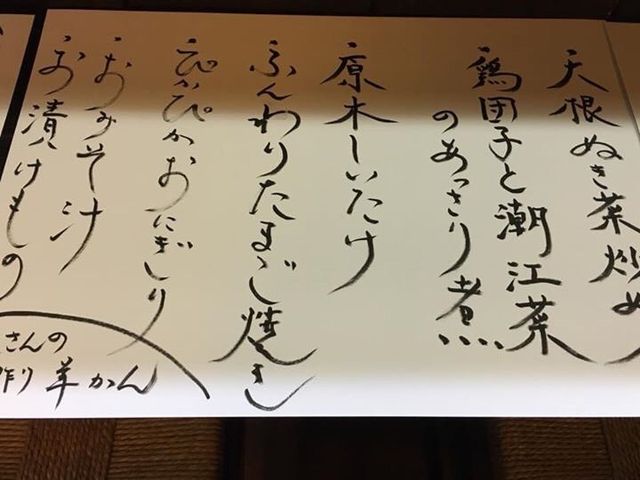 大根ぬき菜炒め
鶏団子と潮江菜
のあっさり煮
原木しいたけ
ふんわりたまご焼き
ぴかぴかおにぎり
おみそ汁
お漬けもの
さんの
作り羊かん